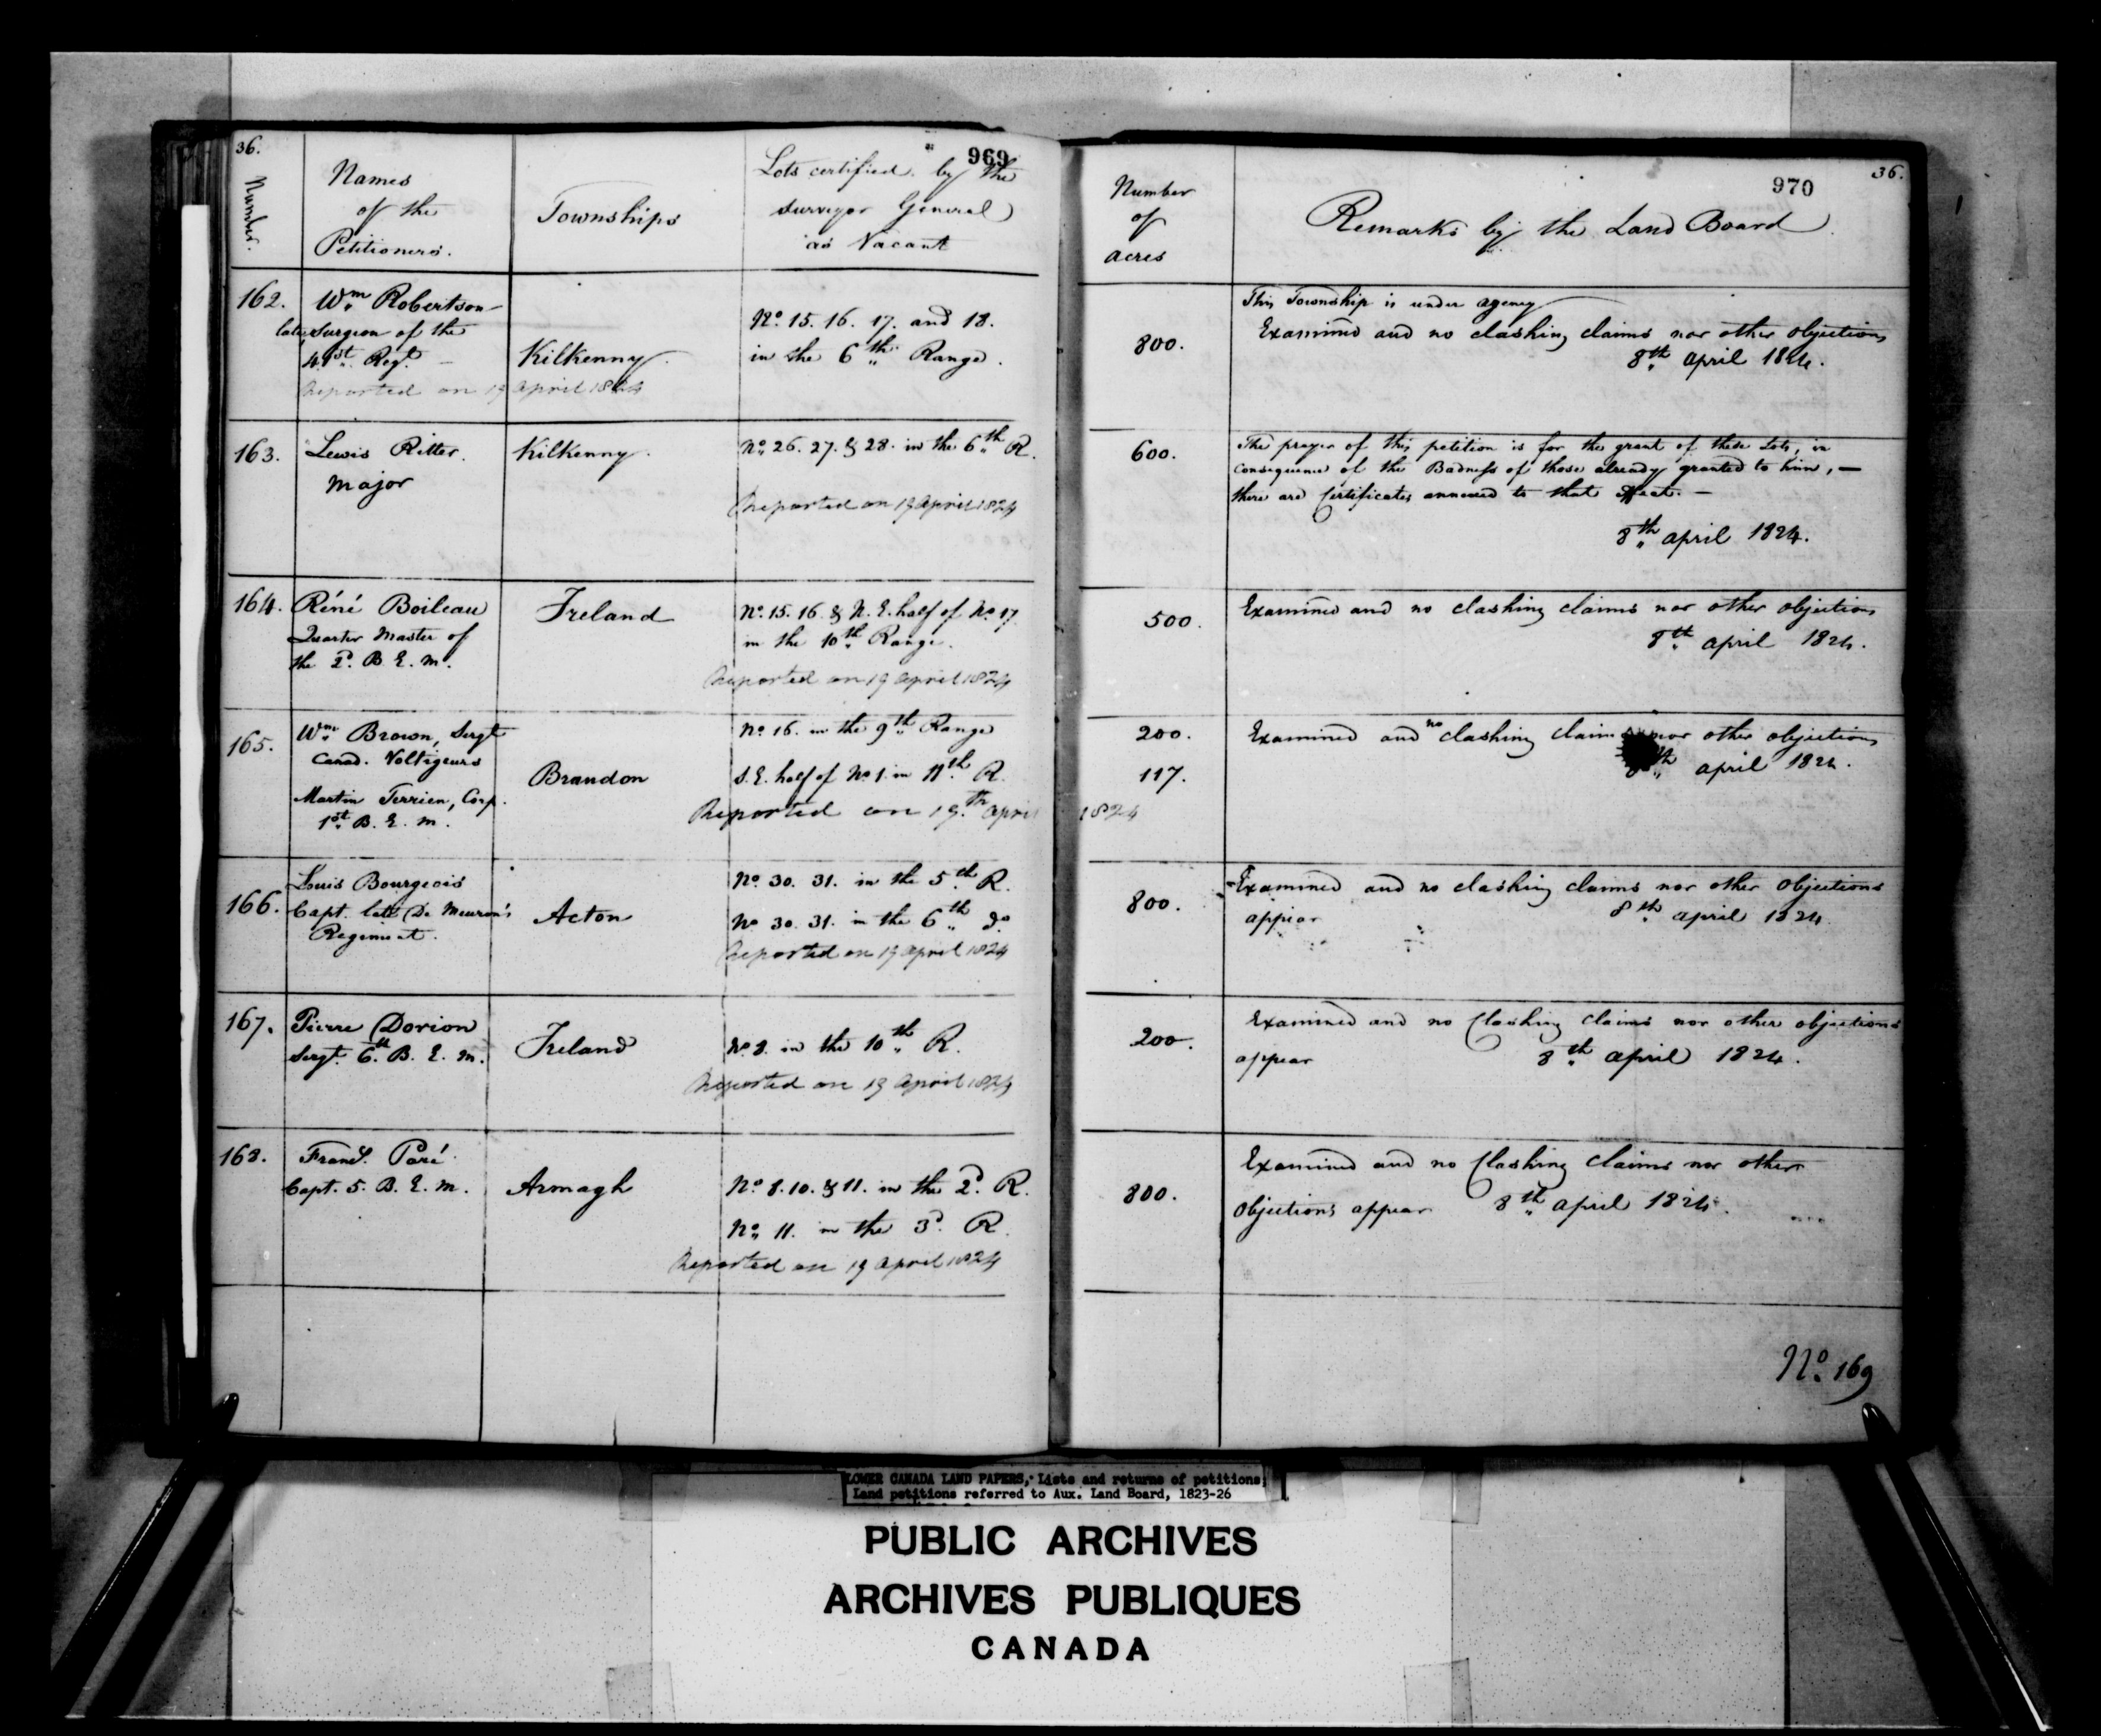 36.
969
Number.
Names
of the
Petitioners.
Townships
Lots certified by the
Surveyor General
as Vacant
162.
Wm Robertson
late Surgeon of the
41st Regt.
Kilkenny
No 15. 16. 17. and 18.
in the 6th Range.
Reported on 19 April 1824
163.
Lewis Ritter.
Major
Kilkenny.
No 26. 27. & 28. in the 6th R.
Reported on 19 April 1824
164.
Réné Boileau
Quarter Master of
the 2d. B. E. M.
Ireland
No 15. 16 & N. E. half of No 17
in the 10th Range.
Reported on 19 April 1824
165.
Wm Brown, Sergt
Canad. Voltigeurs
Martin Terrien, Corp.
1st B. E. M.
Brandon
No 16. in the 9th Range
S. E. half of No 1. in 11th R.
Reported on 19th April 1824
166.
Louis Bourgeois
Capt. late De Meuron's
Regiment.
Acton
No 30. 31. in the 5th R.
No 30. 31. in the 6th do
Reported on 19 April 1824
167.
Pierre Dorion
Sergt. 6th B. E. M.
Ireland
No 8. in the 10th R.
Reported on 19 April 1824
168.
Frans. Paré
Capt. 5. B. E. M.
Armagh
No 8. 10. & 11. in the 2d. R.
No 11. in the 3d. R.
Reported on 19 April 1824
36.
970
Number
of
acres
Remarks by the Land Board
800.
This Township is under agency
Examined and no clashing claims nor other objections
8th April 1824.
600.
The prayer of this petition is for the grant of these Lots, in
consequence of the Badness of those already granted to him, —
there are Certificates annexed to that effect. —
8th April 1824.
500.
Examined and no clashing claims nor other objections
8th April 1824.
200.
117.
Examined and no clashing claims nor other objections
8th April 1824.
800.
Examined and no clashing claims nor other objections
appear 8th April 1824.
200.
Examined and no Clashing claims nor other objections
appear 8th April 1824.
800.
Examined and no Clashing claims nor other
objections appear 8th April 1824.
No. 169
LOWER CANADA LAND PAPERS, Lists and returns of petitions;
Land petitions referred to Aux. Land Board, 1823-26
PUBLIC ARCHIVES
ARCHIVES PUBLIQUES
CANADA